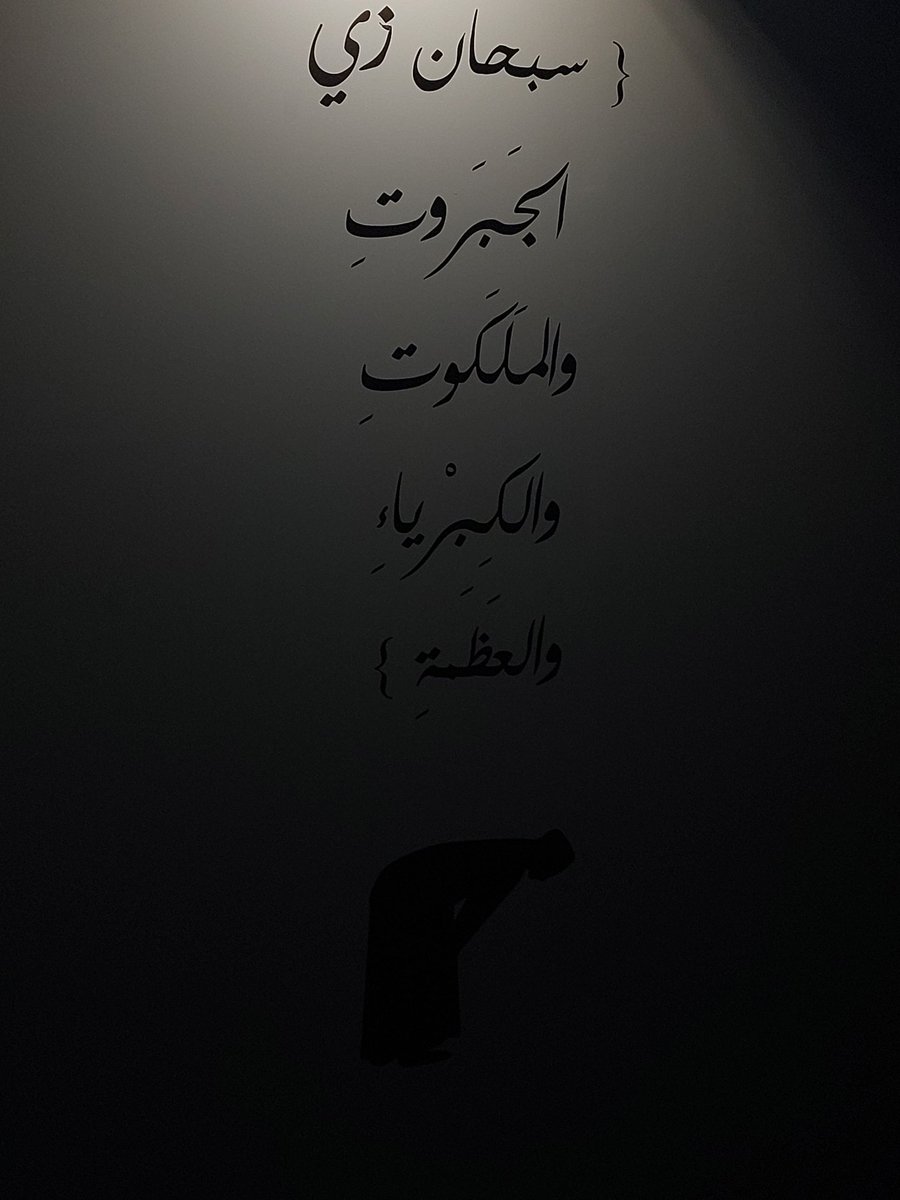 { سبحان زي
الجَبَروتِ
والملَكَوتِ
والكِبِرْياءِ
والعَظَمةِ }